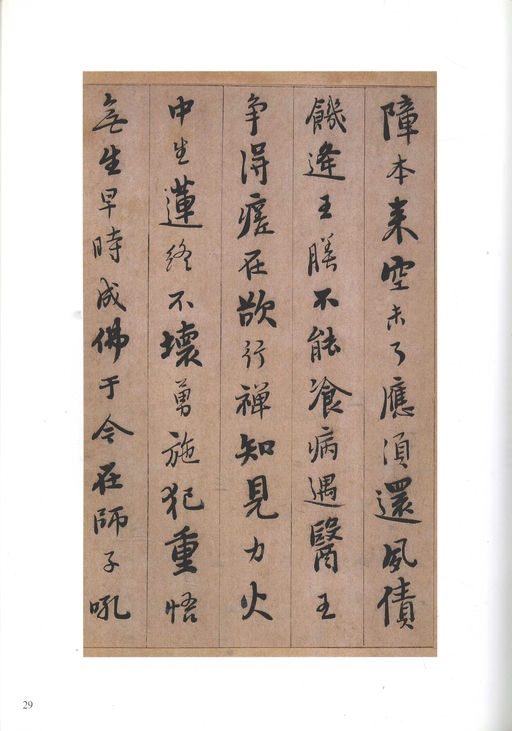 障本来空未了應須還夙債
饑逢王膳不能飡病遇醫王
争得瘥在欲行禅知見力火
中生蓮終不壞勇施犯重悟
無生早時成佛于今在師子吼
29